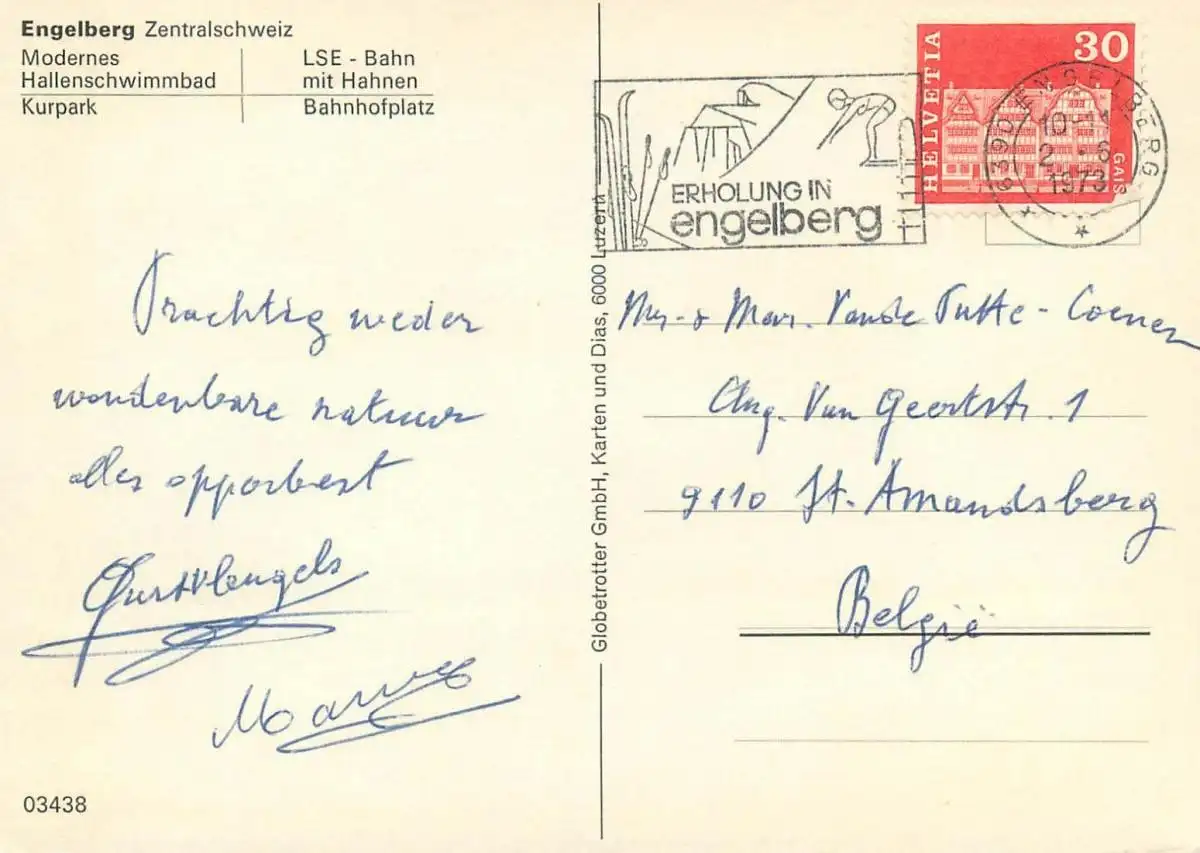 Engelberg Zentralschweiz
Modernes
Hallenschwimmbad
Kurpark
LSE - Bahn
mit Hahnen
Bahnhofplatz
Prachtig weder
wondenbare natuur
alles opperbest
03438
Globetrotter GmbH, Karten und Dias, 6000 Luzern
ERHOLUNG IN
engelberg
HELVETIA
30
GAIS
6390 ENGELBERG
1973
Mr. & Mev. Van de Putte - Coenen
Aug. Van Geertstr. 1
9110 St. Amandsberg
België